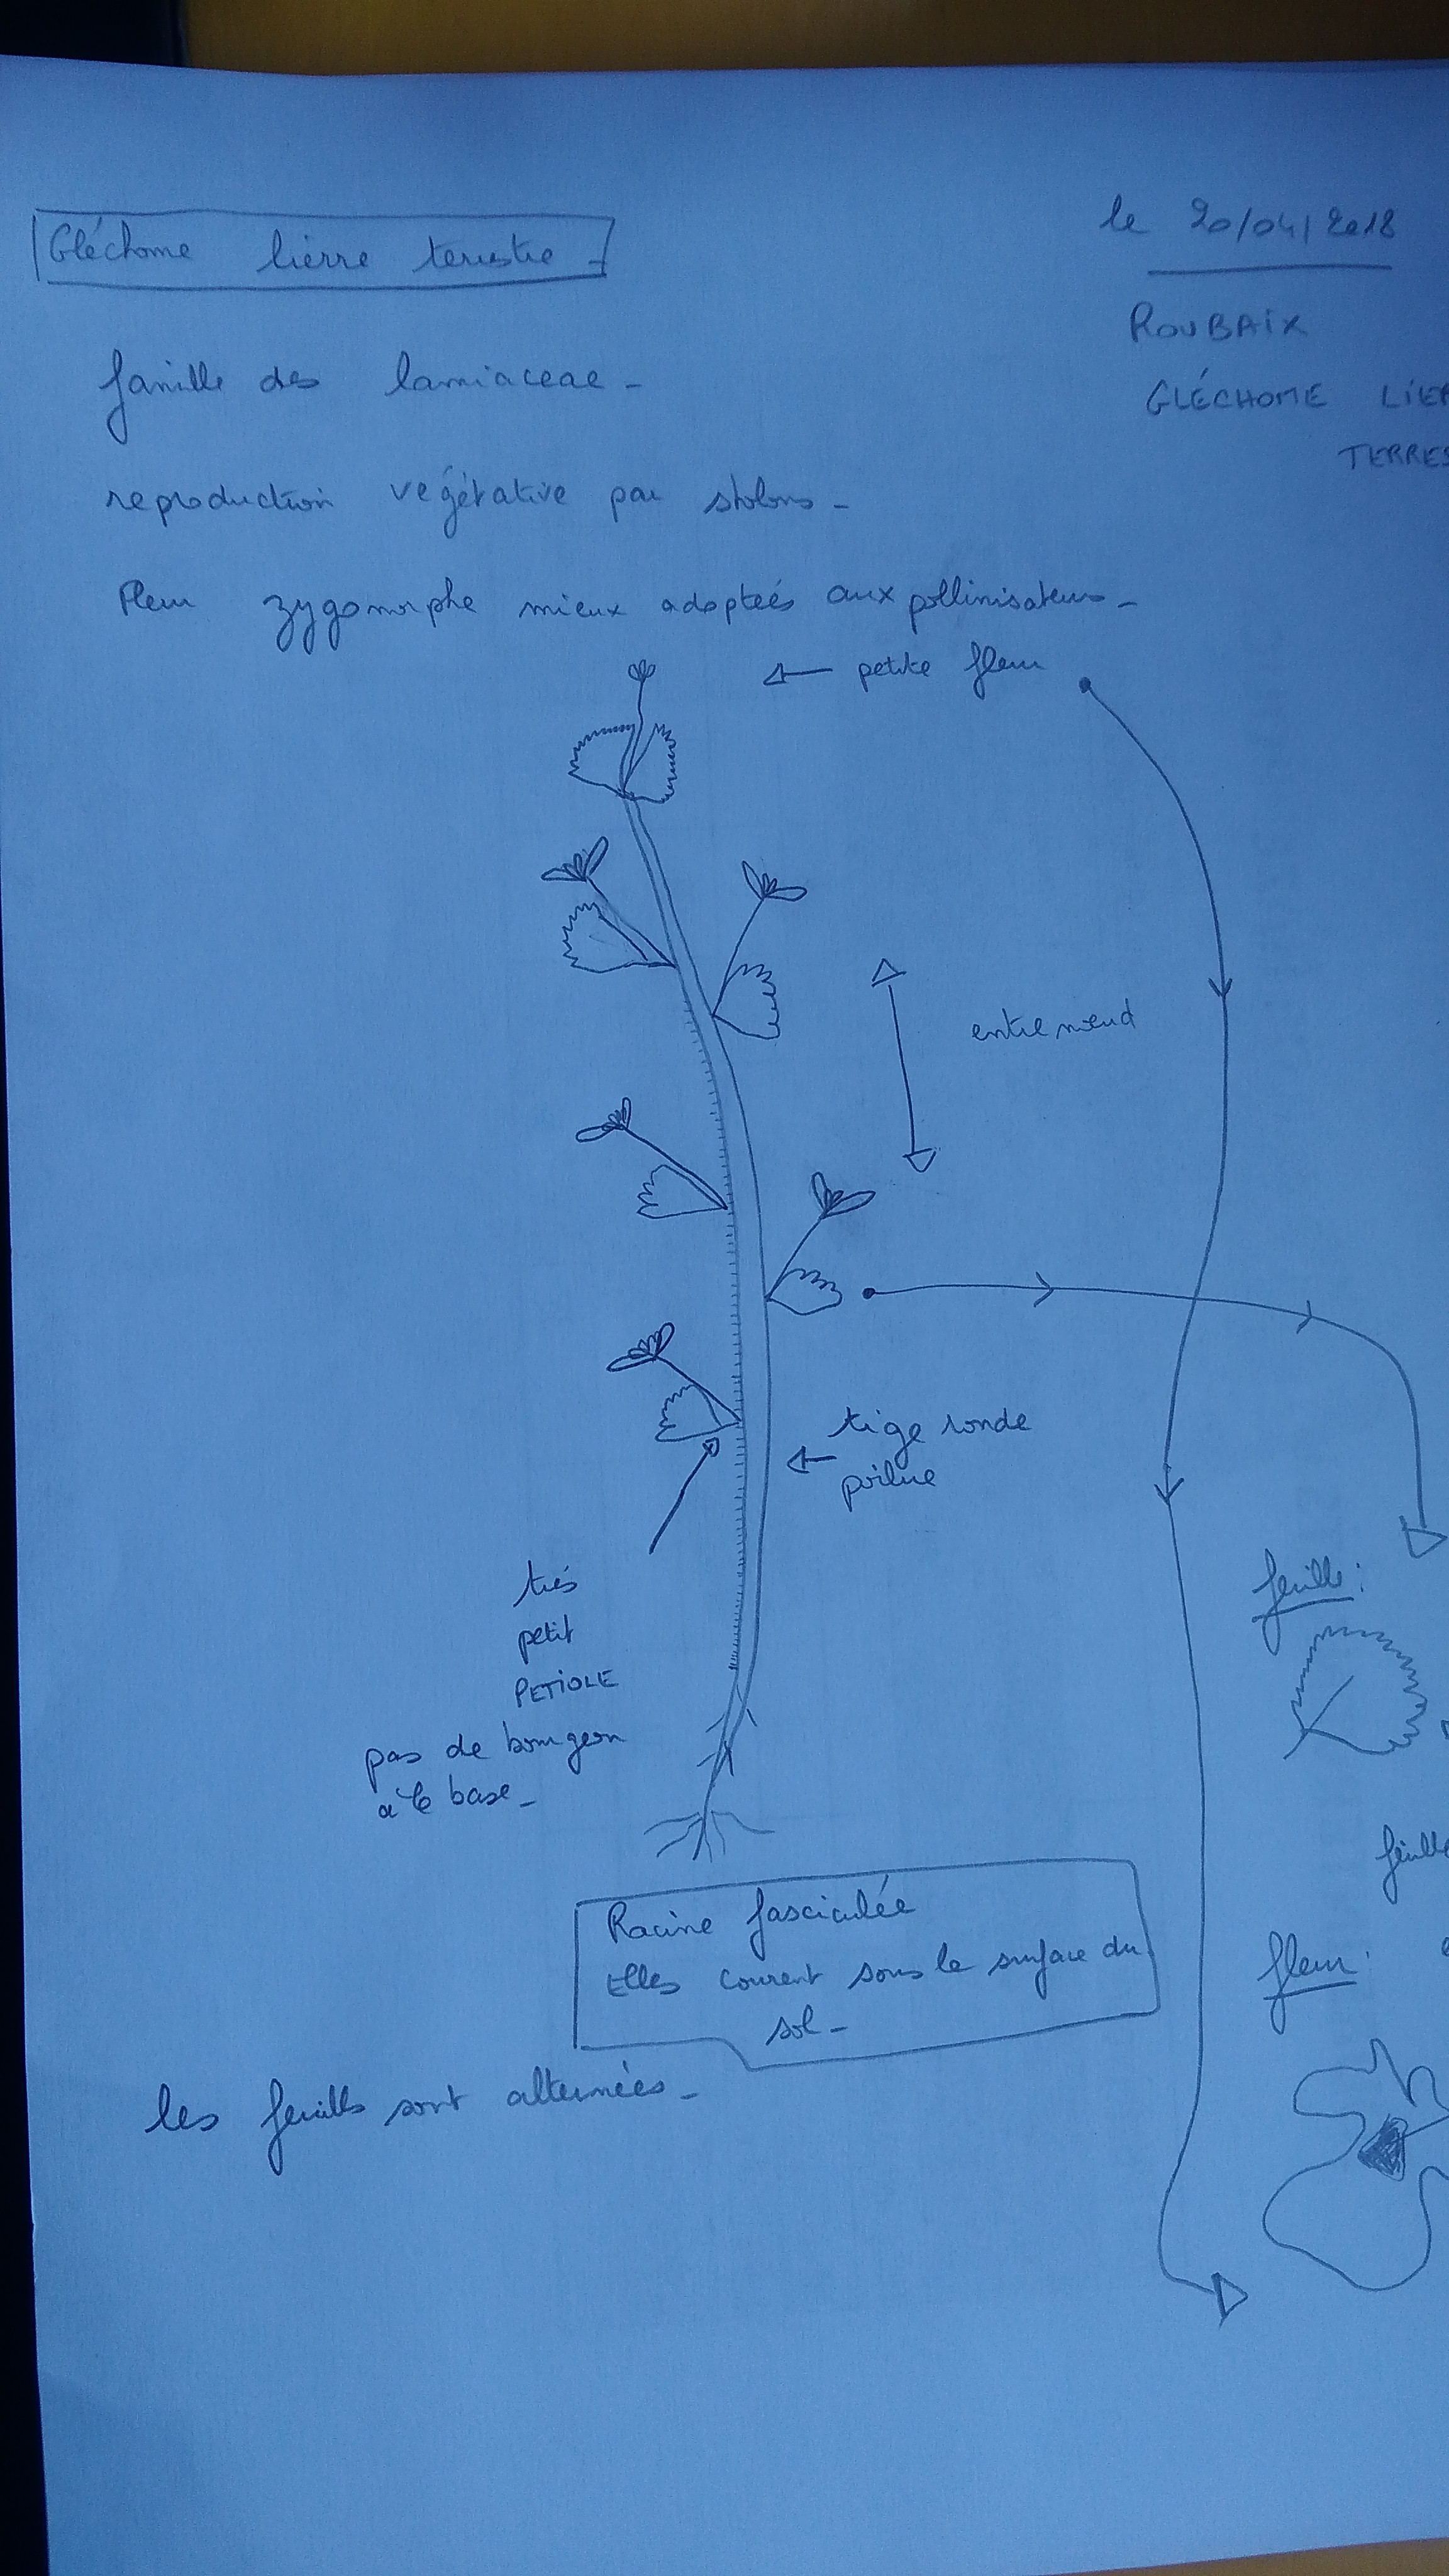 Gléchome lierre terrestre -
le 20/04/2018
ROUBAIX
GLÉCHOME LIER
TERRES
famille des lamiaceae -
reproduction végétative par stolons -
Fleur zygomorphe mieux adaptées aux pollinisateurs -
petite fleur
entre nœud
tige ronde
poilue
très
petit
PETIOLE
pas de bourgeon
a la base -
feuille :
feuille
fleur :
Racine fasciculée
Elles courent sous la surface du
sol -
les feuilles sont alternées -